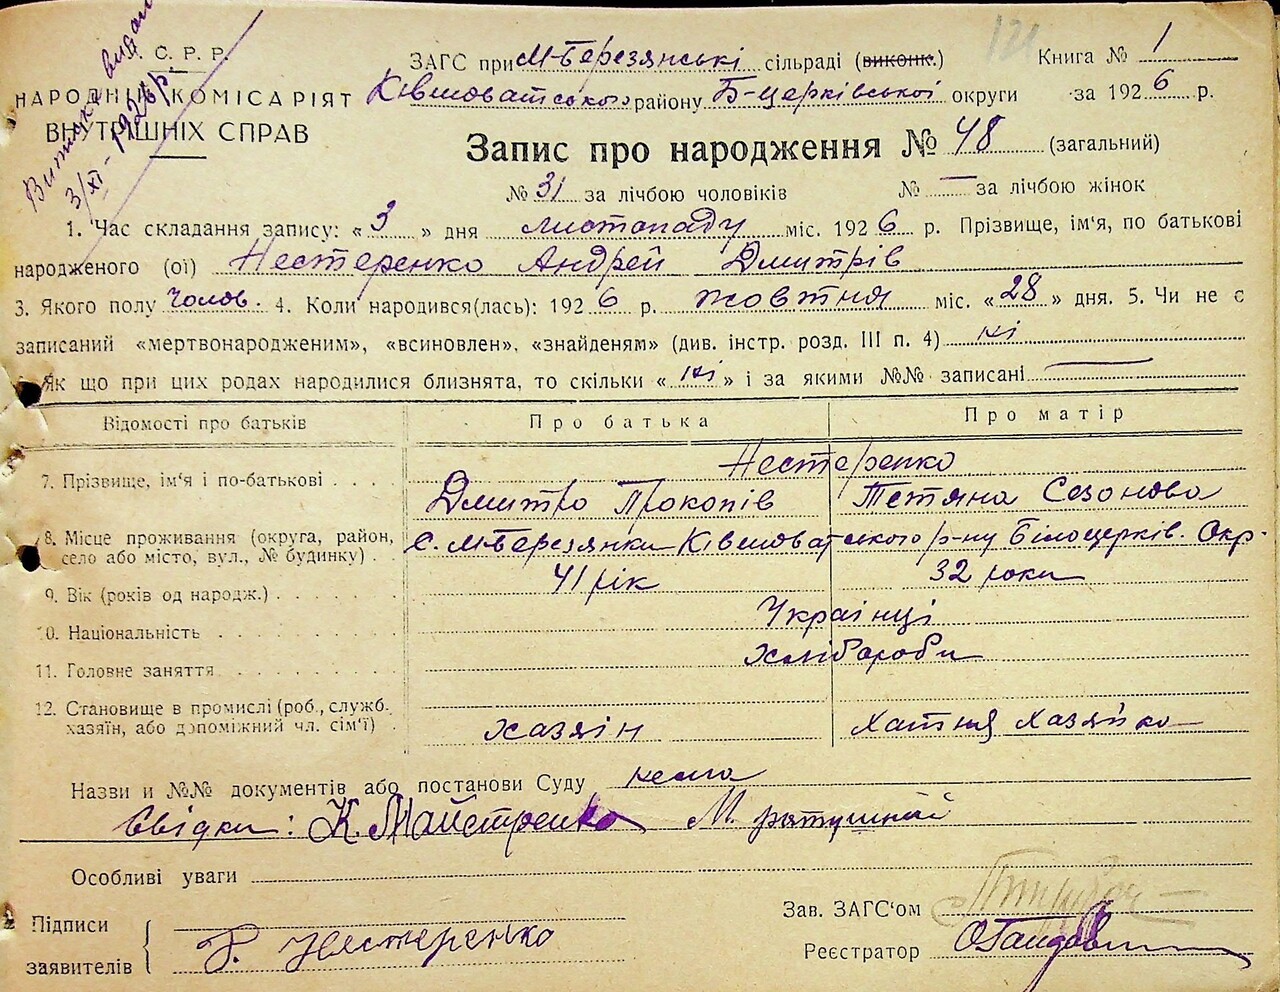 Витика видан
3/XI - 1926 р.
С. Р. Р.
НАРОДНІЙ КОМІСАРІЯТ
ВНУТРІШНІХ СПРАВ
121
ЗАГС при М-Березянські сільраді (виконк.) Книга № 1
Ківшоватського району Б-церківської округи за 1926 р.
Запис про народження № 48 (загальний)
№ 31 за лічбою чоловіків № — за лічбою жінок
1. Час складання запису: «3» дня листопаду міс. 1926 р. Прізвище, ім'я, по батькові
народженого (ої) Нестеренко Андрей Дмитрів
3. Якого полу чолов. 4. Коли народився(лась): 1926 р. жовтня міс. «28» дня. 5. Чи не є
записаний «мертвонародженим», «всиновлен», «знайденям» (див. інстр. розд. III п. 4) ні
Як що при цих родах народилися близнята, то скільки «ні» і за якими №№ записані —
Відомості про батьків Про батька Про матір
Нестеренко
7. Прізвище, ім'я і по-батькові . . . . Дмитро Прокопів Тетяна Сезонова
8. Місце проживання (округа, район, село або місто, вул., № будинку) . с. М-Березянки Ківшоватського р-ну Білоцерків. Окр.
9. Вік (років од народж.) . . . . . . 41 рік 32 роки
10. Національність . . . . . . . . Українці
11. Головне заняття . . . . . . . . Хлібороби
12. Становище в промислі (роб., службр. хазяїн, або допоміжний чл. сім'ї) . хазяін хатня хазяйка
Назви и №№ документів або постанови Суду нема
Свідки: К. Майстренко М. ратушній
Особливі уваги
Підписи
заявителів
Нестеренко
Зав. ЗАГС'ом
Реєстратор